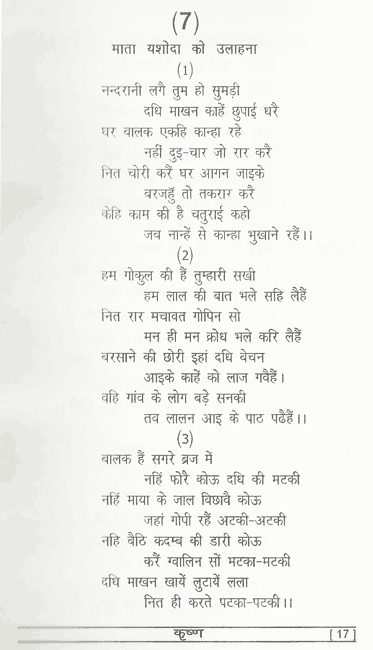 (7)
माता यशोदा को उलाहना
(1)
नन्दरानी लगै तुम हो सुमड़ी
दधि माखन काहें छुपाई धरै
घर बालक एकहि कान्हा रहे
नहीं दुइ-चार जो रार करै
नित चोरी करैं घर आगन जाइके
बरजहुँ तो तकरार करै
केहि काम की है चतुराई कहो
जब नान्हें से कान्हा भुखाने रहैं।।
(2)
हम गोकुल की हैं तुम्हारी सखी
हम लाल की बात भले सहि लैहैं
नित रार मचावत गोपिन सो
मन ही मन क्रोध भले करि लैहैं
बरसाने की छोरी इहां दधि बेचन
आइके काहें को लाज गवैहैं।
वहि गांव के लोग बड़े सनकी
तव लालन आइ के पाठ पढैहैं।।
(3)
बालक हैं सगरे ब्रज में
नहिं फोरै कोऊ दधि की मटकी
नहिं माया के जाल विछावै कोऊ
जहां गोपी रहैं अटकी-अटकी
नहि बैठि कदम्ब की डारी कोऊ
करैं ग्वालिन सों मटका-मटकी
दधि माखन खायें लुटायें लला
नित ही करते पटका-पटकी।।
कृष्ण [17]